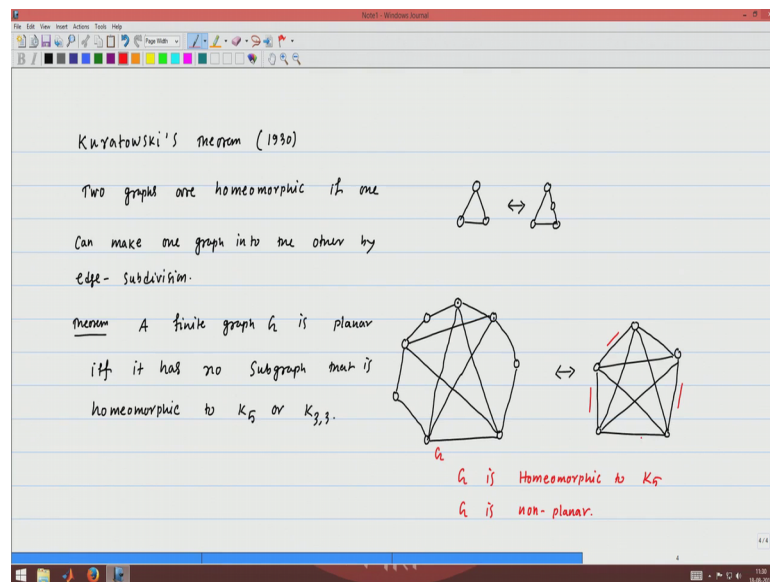 Note1 - Windows Journal
File Edit View Insert Actions Tools Help
Page Width
B I
Kuratowski's Theorem (1930)
Two graphs are homeomorphic if one
Can make one graph into the other by
edge-subdivision.
Theorem A finite graph G is planar
iff it has no Subgraph that is
homeomorphic to K5 or K3,3.
G
G is Homeomorphic to K5
G is non-planar.
4/4
4
11:30